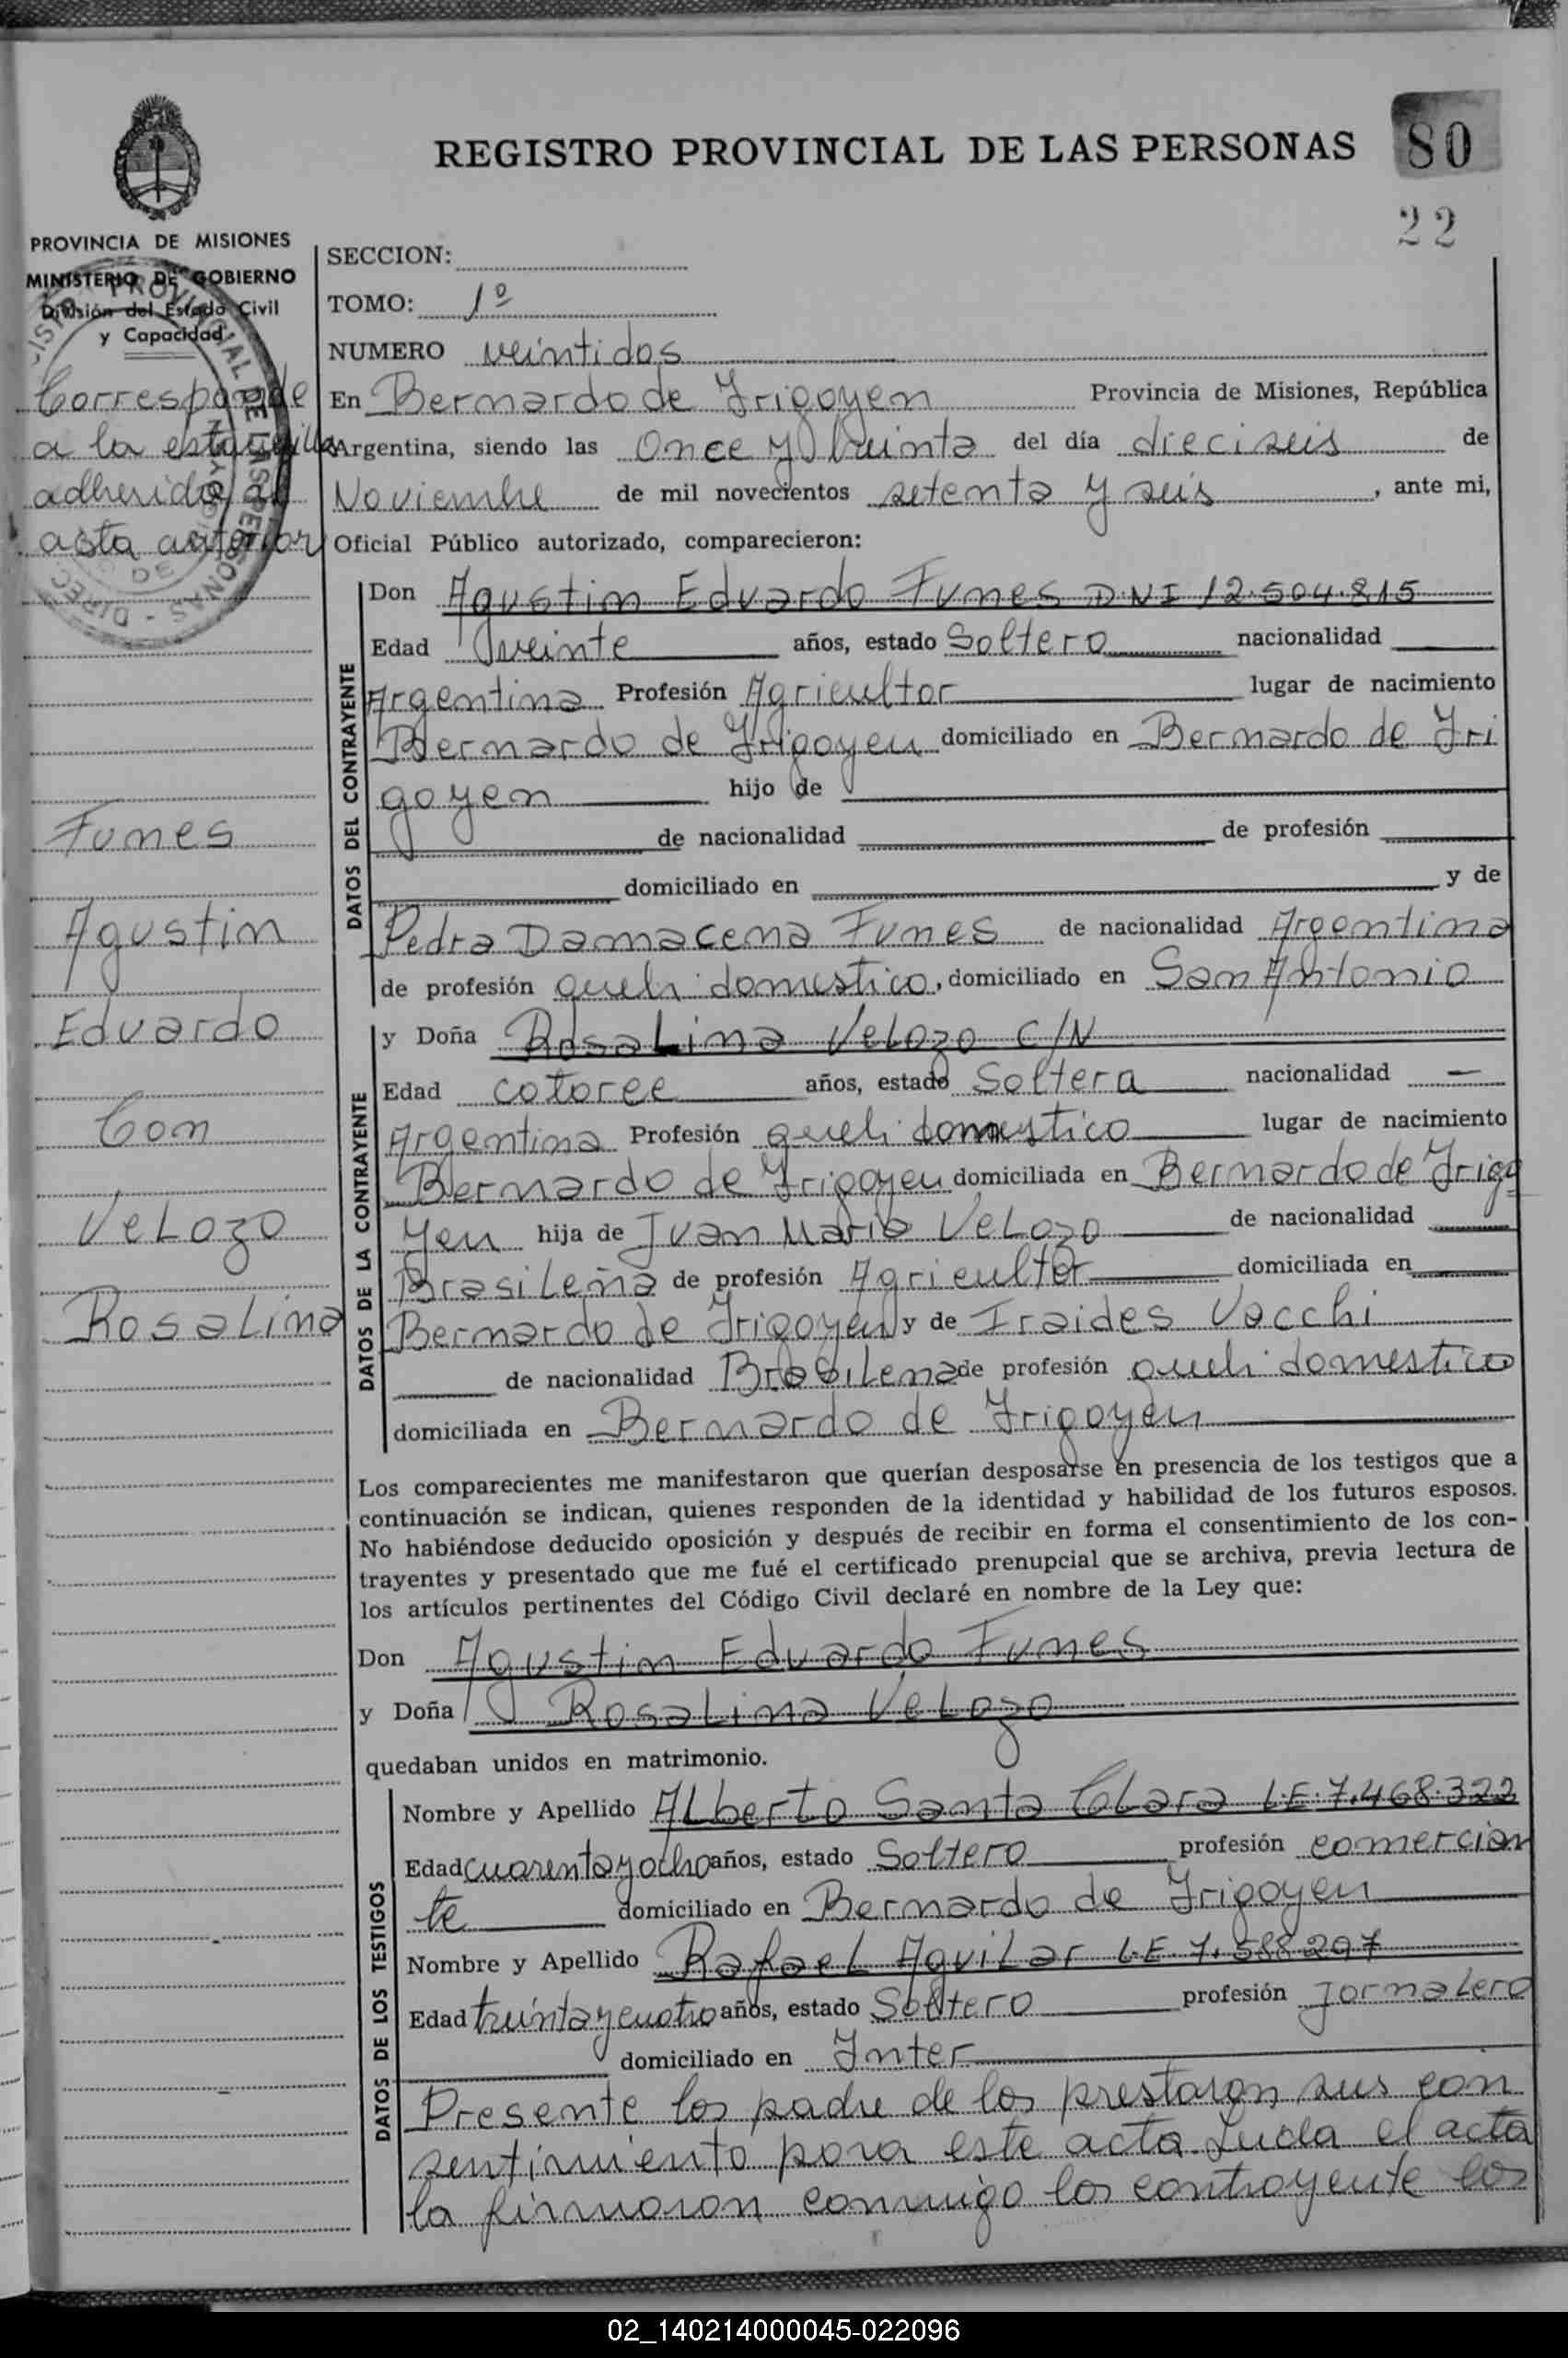 REGISTRO PROVINCIAL DE LAS PERSONAS
80
22
PROVINCIA DE MISIONES
MINISTERIO DE GOBIERNO
División del Estado Civil
y Capacidad
Corresponde
a la estampilla
adherida
acta anterior
Funes
Agustin
Eduardo
Con
VeLozo
RosaLina
SECCION:
TOMO: 1º
NUMERO veintidos
En Bernardo de Irigoyen Provincia de Misiones, República
Argentina, siendo las Once y treinta del día dieciseis de
Noviembre de mil novecientos setenta y seis, ante mi,
Oficial Público autorizado, comparecieron:
DATOS DEL CONTRAYENTE
Don Agustin Eduardo Funes D.N.I 12.504.815
Edad veinte años, estado Soltero nacionalidad
Argentina Profesión Agricultor lugar de nacimiento
Bernardo de Irigoyen domiciliado en Bernardo de Iri
goyen hijo de
de nacionalidad de profesión
domiciliado en y de
Pedra Damacena Funes de nacionalidad Argentina
de profesión domestico, domiciliado en San Antonio
DATOS DE LA CONTRAYENTE
y Doña RosaLina VeLozo C/N
Edad catorce años, estado Soltera nacionalidad —
Argentina Profesión domestico lugar de nacimiento
Bernardo de Irigoyen domiciliada en Bernardo de Irigo
yen hija de Juan Maria VeLozo de nacionalidad
BrasiLeña de profesión Agricultor domiciliada en
Bernardo de Irigoyen y de Iraides Vacchi
de nacionalidad BrasiLena de profesión domestico
domiciliada en Bernardo de Irigoyen
Los comparecientes me manifestaron que querían desposarse en presencia de los testigos que a
continuación se indican, quienes responden de la identidad y habilidad de los futuros esposos.
No habiéndose deducido oposición y después de recibir en forma el consentimiento de los con-
trayentes y presentado que me fué el certificado prenupcial que se archiva, previa lectura de
los artículos pertinentes del Código Civil declaré en nombre de la Ley que:
Don Agustin Eduardo Funes
y Doña RosaLina VeLozo
quedaban unidos en matrimonio.
DATOS DE LOS TESTIGOS
Nombre y Apellido ALberto Santa CLara L.E. 7.468.322
Edad cuarenta y ocho años, estado Soltero profesión comercian
te domiciliado en Bernardo de Irigoyen
Nombre y Apellido RafaeL AguiLar L.E. 7.588.297
Edad treinta y cuatro años, estado Soltero profesión JornaLero
domiciliado en Inter
Presente los padre de los prestaron sus con
sentimiento para este acta. Leida el acta
la firmaron conmigo los contrayente los
02_140214000045-022096